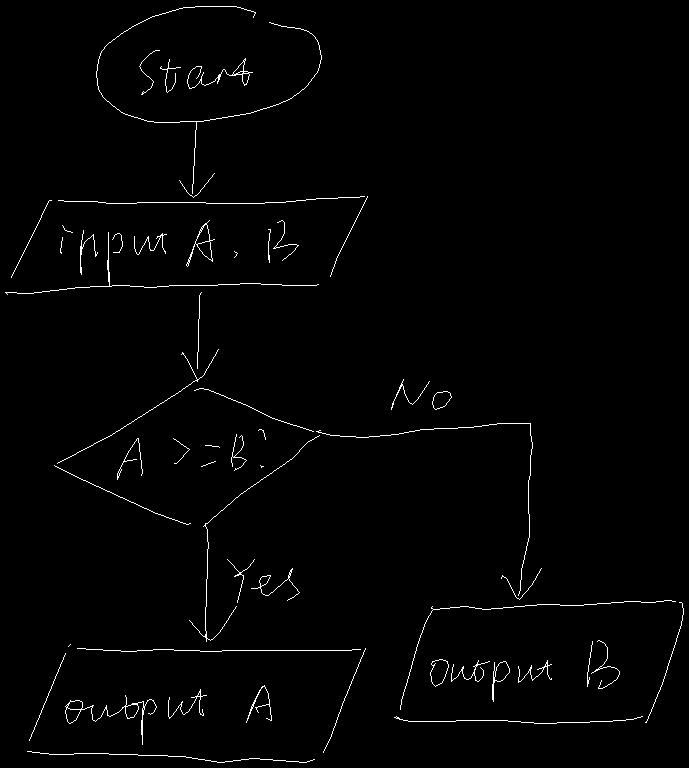 Start
input A, B
A >= B?
No
Yes
output A
output B